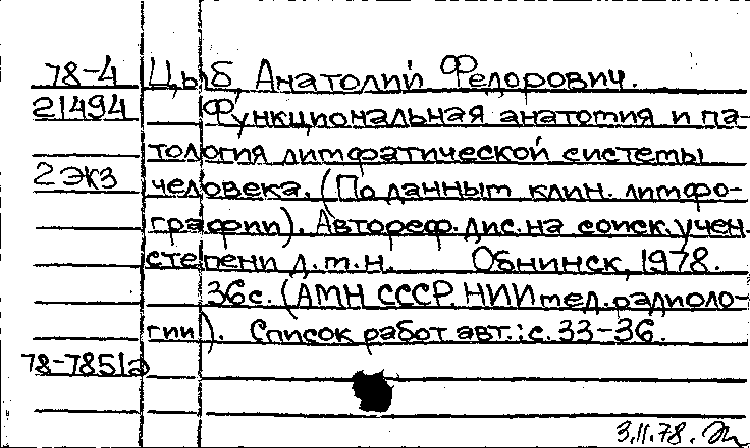 78-4 Цыб, Анатолий Федорович.
21494 Функциональная анатомия и па-
тология лимфатической системы
2 экз человека. (По данным клин. лимфо-
графии). Автореф. дис. на соиск. учен.
степени д.м.н. Обнинск, 1978.
36с. (АМН СССР. НИИ мед. радиоло-
гии). Список работ авт.: с. 33-36.
78-7851а
3.II.78.